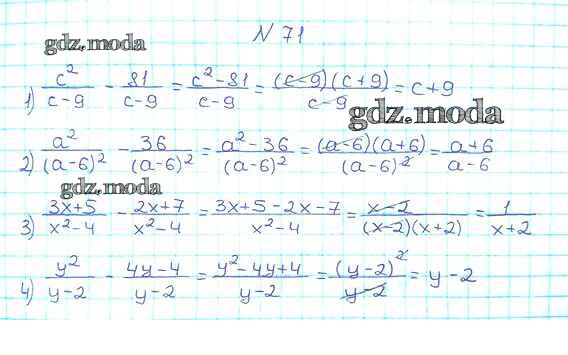 N 71
gdz.moda
1) c²/(c-9) - 81/(c-9) = (c²-81)/(c-9) = (c-9)(c+9)/(c-9) = c+9
gdz.moda
2) a²/(a-6)² - 36/(a-6)² = (a²-36)/(a-6)² = (a-6)(a+6)/(a-6)² = (a+6)/(a-6)
gdz.moda
3) (3x+5)/(x²-4) - (2x+7)/(x²-4) = (3x+5-2x-7)/(x²-4) = (x-2)/((x-2)(x+2)) = 1/(x+2)
4) y²/(y-2) - (4y-4)/(y-2) = (y²-4y+4)/(y-2) = (y-2)²/(y-2) = y-2